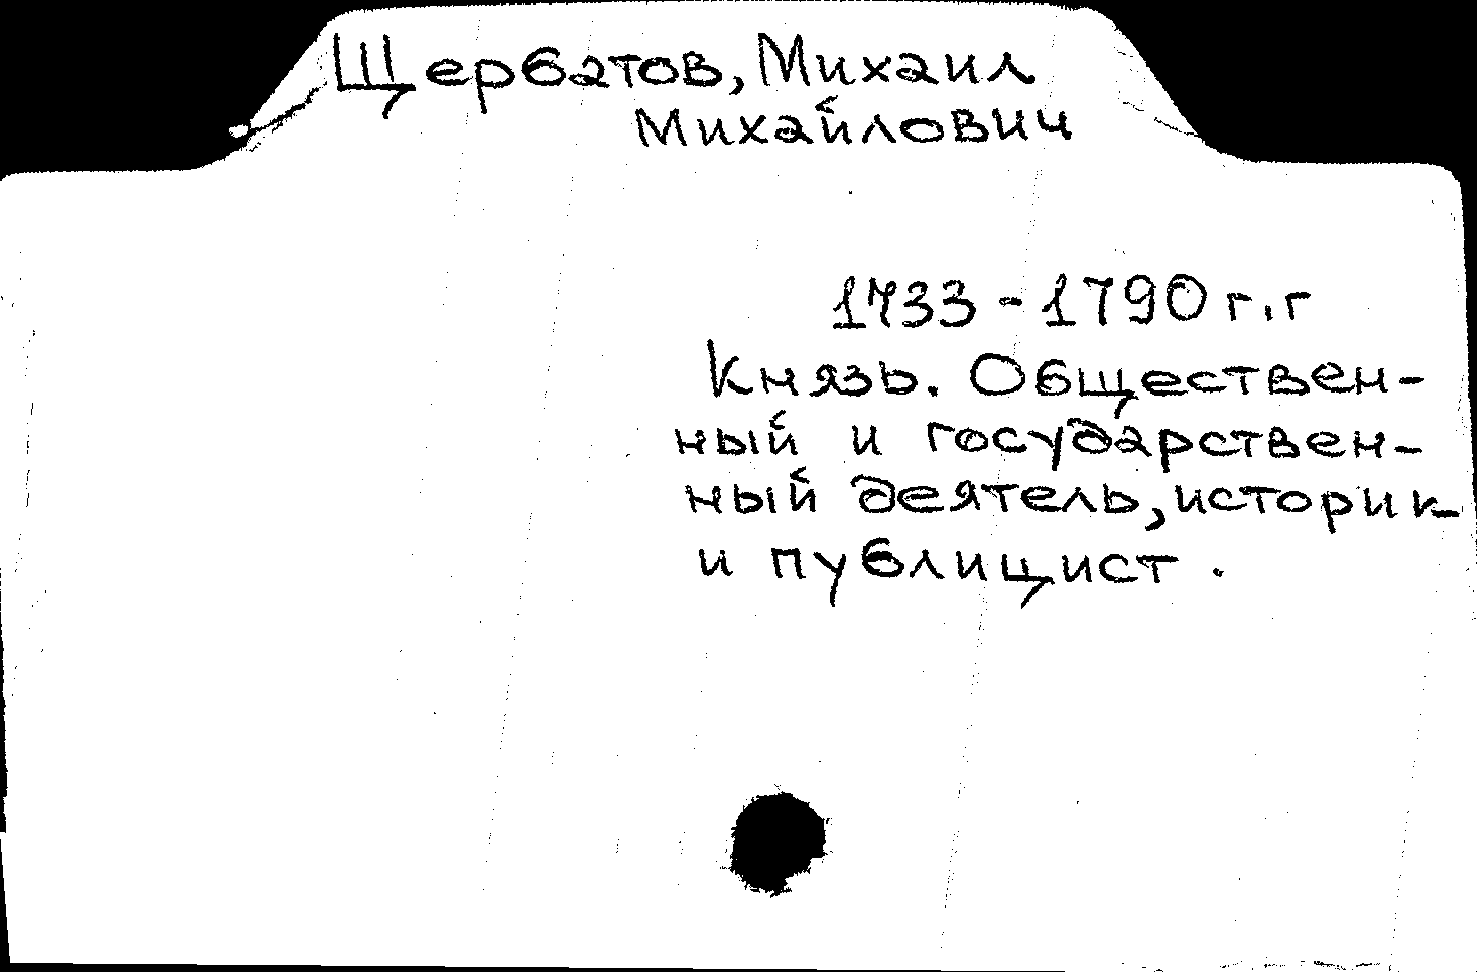 Щербатов, Михаил
Михайлович
1733 - 1790 г.г
Князь. Обществен-
ный и государствен-
ный деятель, историк
и публицист.